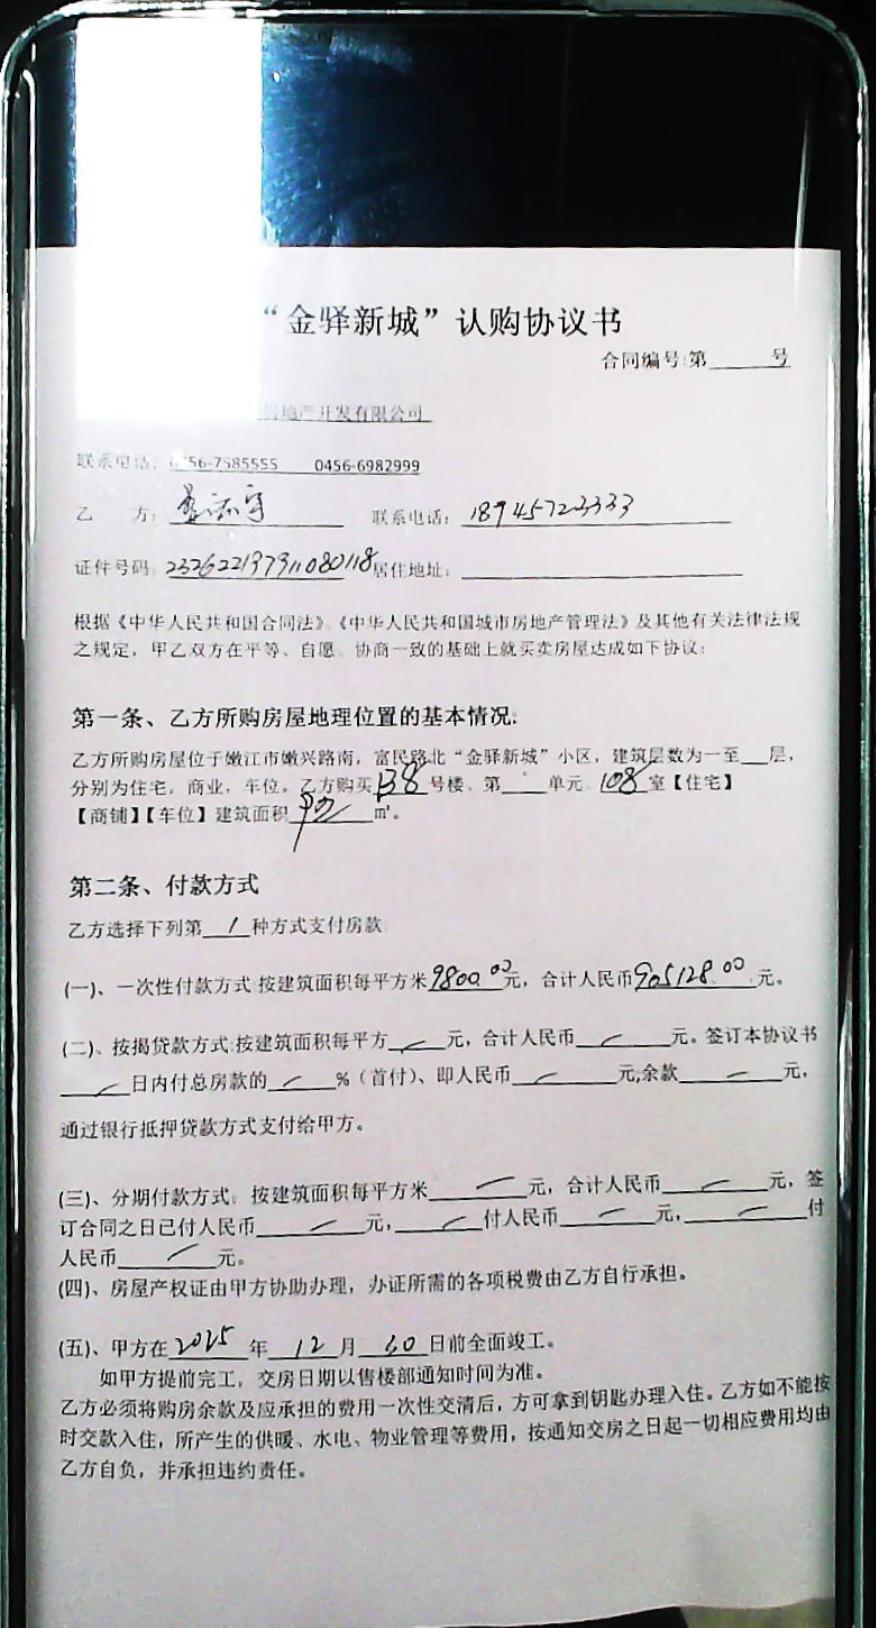 “金驿新城”认购协议书
合同编号:第______号
房地产开发有限公司
联系电话：0456-7585555 0456-6982999
乙 方： 联系电话：18945723333
证件号码 232622197911080118 居住地址：
根据《中华人民共和国合同法》、《中华人民共和国城市房地产管理法》及其他有关法律法规
之规定，甲乙双方在平等、自愿、协商一致的基础上就买卖房屋达成如下协议：
第一条、乙方所购房屋地理位置的基本情况:
乙方所购房屋位于嫩江市嫩兴路南，富民路北“金驿新城”小区，建筑层数为一至__层，
分别为住宅，商业，车位。乙方购买 号楼、第____单元 108 室【住宅】
【商铺】【车位】建筑面积 ㎡。
第二条、付款方式
乙方选择下列第 1 种方式支付房款
(一)、一次性付款方式:按建筑面积每平方米 9800.00 元，合计人民币 905128.00 元。
(二)、按揭贷款方式:按建筑面积每平方____元，合计人民币____元。签订本协议书
____日内付总房款的____%（首付）、即人民币____元,余款____元，
通过银行抵押贷款方式支付给甲方。
(三)、分期付款方式：按建筑面积每平方米____元，合计人民币____元，签
订合同之日已付人民币____元，____付人民币____元，____付
人民币____元。
(四)、房屋产权证由甲方协助办理，办证所需的各项税费由乙方自行承担。
(五)、甲方在 2025 年 12 月 30 日前全面竣工。
如甲方提前完工，交房日期以售楼部通知时间为准。
乙方必须将购房余款及应承担的费用一次性交清后，方可拿到钥匙办理入住。乙方如不能按
时交款入住，所产生的供暖、水电、物业管理等费用，按通知交房之日起一切相应费用均由
乙方自负，并承担违约责任。